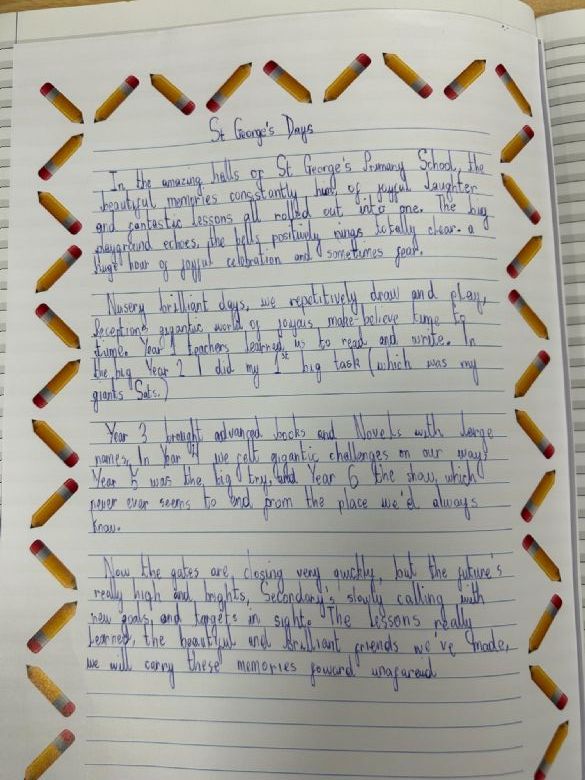 St George's Days
In the amazing halls of St George's Primary School, the
beautiful memories constantly hum of joyful laughter
and fantastic lessons all rolled out into one. The big
playground echoes, the bells positively rings totally clear. a
huge hour of joyful celebration and sometimes fear.
Nursery brilliant days, we repetitively draw and play,
Receptions gigantic world of joyous make-believe time to
time. Year 1 teachers learned us to read and write. In
the big Year 2 I did my 1st big task (which was my
giants Sats.)
Year 3 brought advanced books and Novels with large
names. In Year 4 we felt gigantic challenges on our way
Year 5 was the big try, and Year 6 the show, which
never ever seems to end from the place we'd always
know.
Now the gates are closing very quickly, but the future's
really high and brights, Secondary's slowly calling with
new goals and targets in sight. The lessons really
Learned, the beautiful and brilliant friends we've made,
we will carry these memories foward unafareud